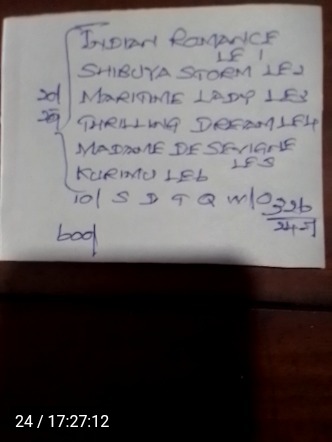 INDIAN ROMANCE
LE 1
SHIBUYA STORM LE2
20/ MARITIME LADY LE3
THRILLING DREAM LE4
MADAME DE SEVIGNE
LE5
KURIMU LE6
10/ S D T Q W/O 326
600/
24/17:27:12